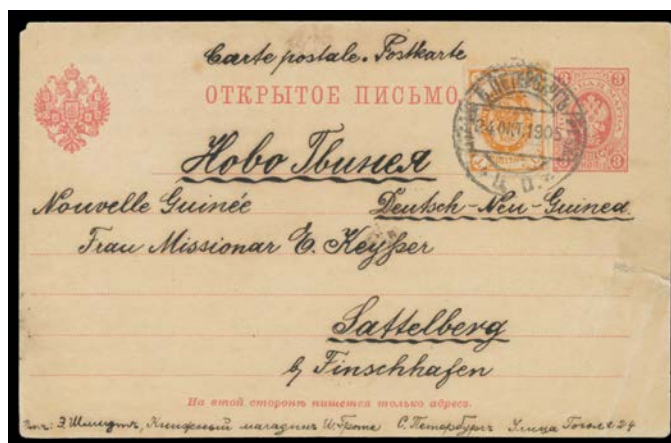 Carte postale. Postkarte
ОТКРЫТОЕ ПИСЬМО.
С.ПЕТЕРБУРГЪ
24 ОКТ. 1905
3
3
Ново Гвинея
Nouvelle Guinée
Deutsch-Neu-Guinea.
Frau Missionar E. Keyßer
Sattelberg
b/ Finschhafen
На этой сторонѣ пишется только адресъ.
Э. Шмидтъ, Книжный магазинъ С. Петербургъ Улица Гоголя 24